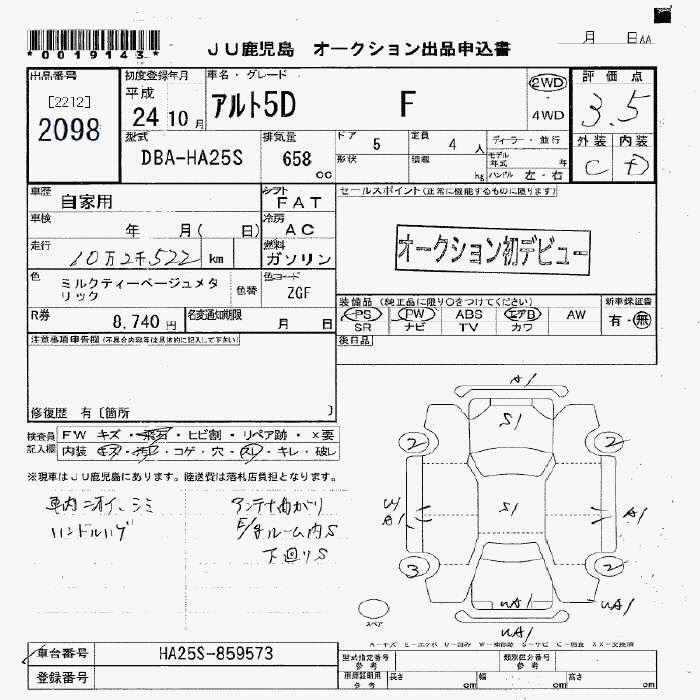 *0019143*
JU鹿児島 オークション出品申込書
月 日AA
出品番号
[2212]
2098
初度登録年月
平成
24 10月
車名・グレード
アルト5D F
2WD
・
4WD
評価点
3.5
型式
DBA-HA25S
排気量
658
cc
ドア 5
定員 4 人
形状
積載 kg
ディーラー・並行
モデル年式 年
ハンドル 左・右
外装 内装
C D
車歴
自家用
シフト
FAT
セールスポイント(正常に機能するものに限ります)
車検
年 月( 日)
冷房
AC
オークション初デビュー
走行
10万2千522 km
燃料
ガソリン
色
ミルクティーベージュメタリック
色替
色コード
ZGF
装備品(純正品に限り○をつけてください)
PS PW ABS エアB AW
SR ナビ TV カワ
新車保証書
有・無
R券
8,740円
名変通知期限
月 日
注意事項申告欄(不具合内容等は具体的に記入して下さい)
後日品
修復歴 有〔箇所 〕
検査員記入欄
FW キズ・飛石・ヒビ割・リペア跡・×要
内装 キズ・汚れ・コゲ・穴・スレ・キレ・破レ
※現車はJU鹿児島にあります。陸送費は落札店負担となります。
車内ニオイ、シミ
ハンドルハゲ
アンテナ曲がり
E/gルーム内S
下回りS
A1
S1
2
2
W
A1
S1
A1
3
2
UA1
UA1
UA1
スペア
車台番号
HA25S-859573
登録番号
型式指定番号
参考
類別区分番号
参考
車庫証明用
参考
長さ cm
幅 cm
高さ cm